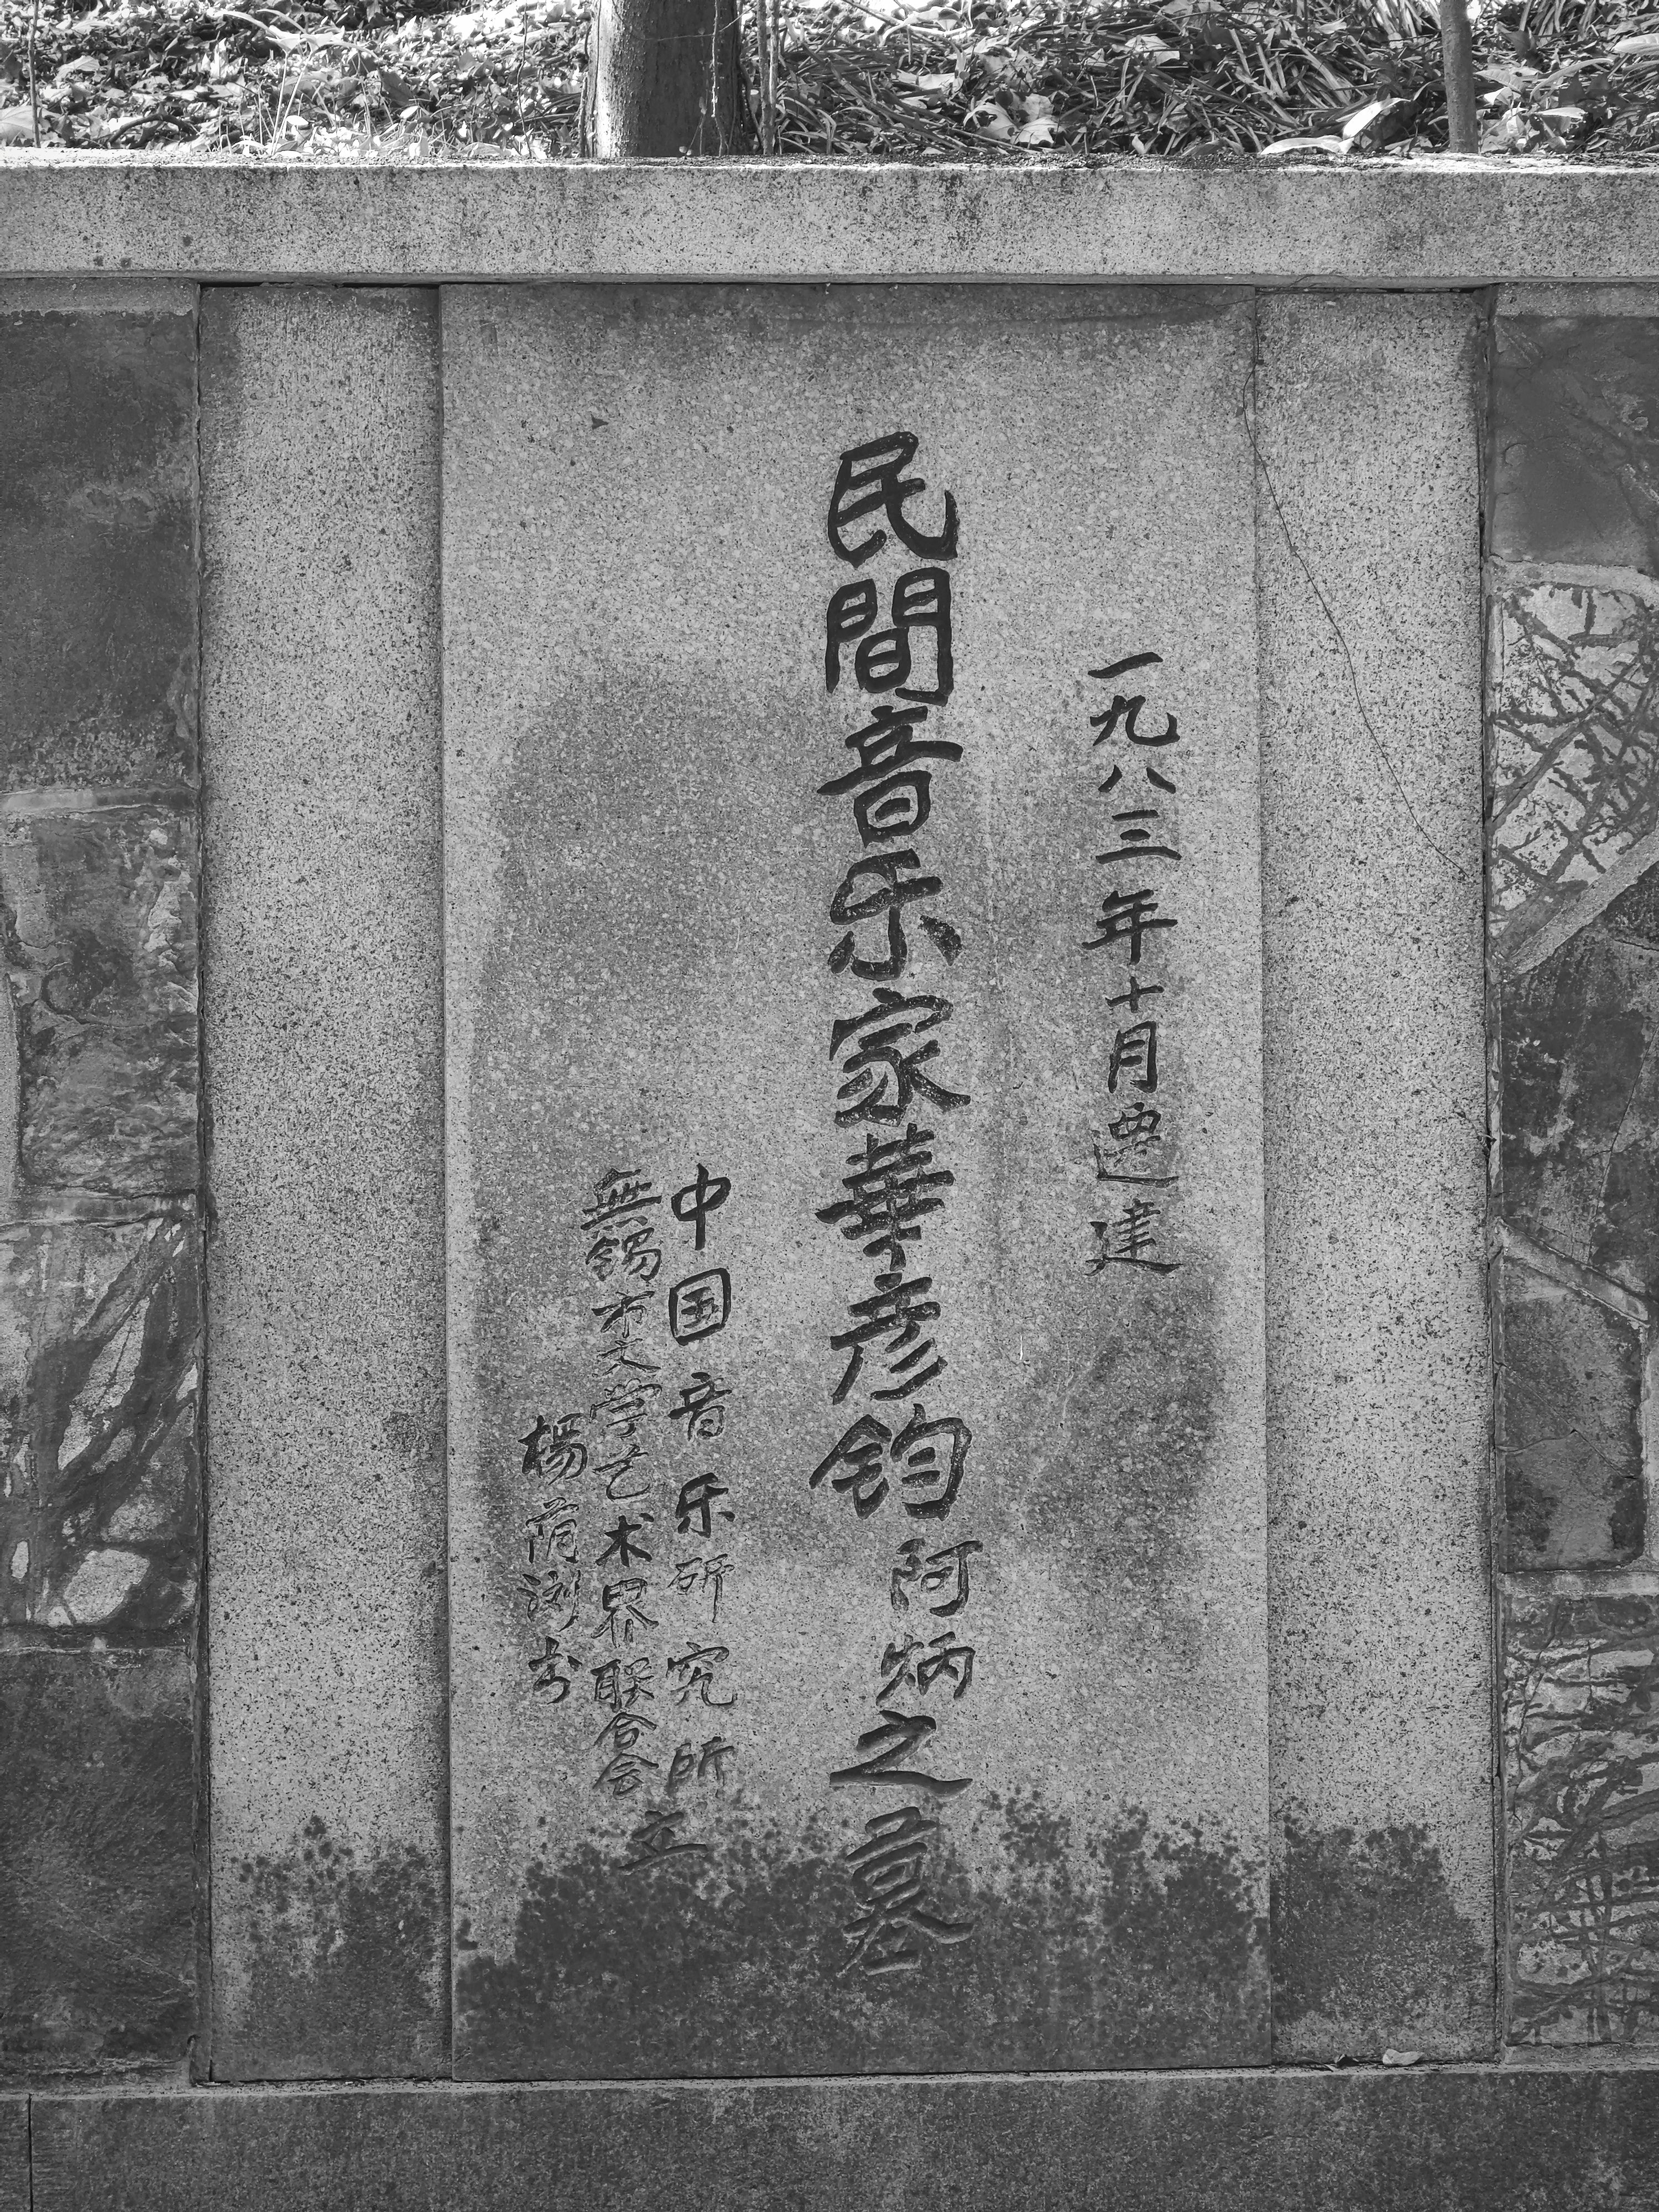 一九八三年十月遷建
民間音乐家華彦鈞阿炳之墓
中国音乐研究所
無錫市文学艺术界联合会立
楊荫浏书